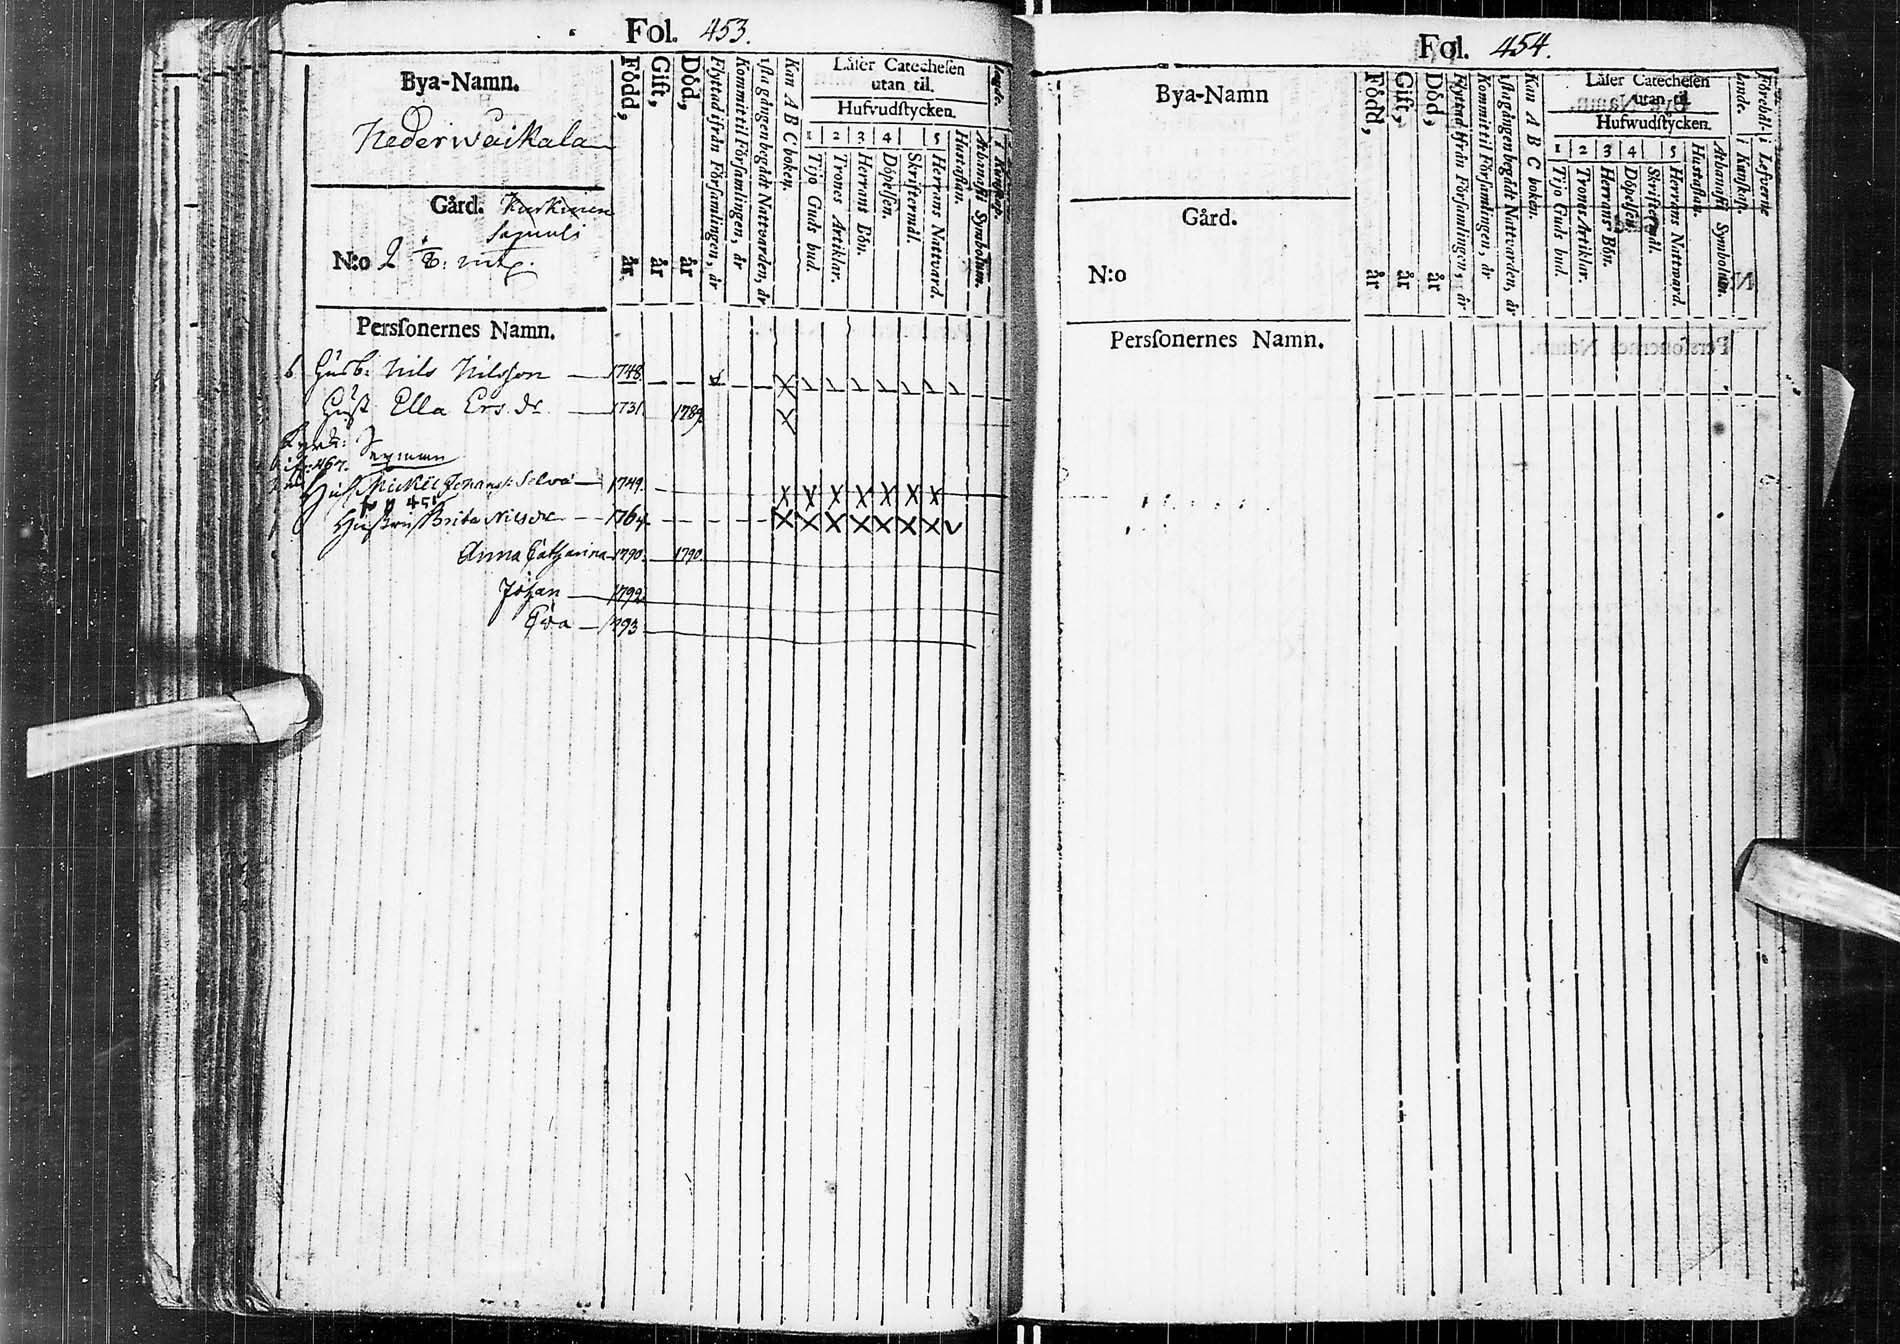 Fol. 453.
Bya-Namn.
Nederwäikala
Gård. Kurkinen
N:o 2
Född, år
Gift, år
Död, år
Flyttad ifrån Församlingen, år
Kommit til Församlingen, år
1sta gången begådt Nattvarden, år
Kan A B C boken.
Läser Catechesen
utan til.
Hufvudſtycken.
1 2 3 4 5
Tijo Guds bud.
Trones Artiklar.
Herrans Bön.
Döpelſen.
Skriftermål.
Herrans Nattvard.
Huſtaflan.
Athanaſii Symbolum.
Perſonernes Namn.
Husb: Nils Nilsson 1748.
Hust. Ella Ers.dr 1731. 1789.
Mickel Johanss: Selvä 1749.
Hustru Brita Nilsdr 1764
Anna Catharina 1790. 1790.
Johan 1792.
Eva 1793
Fol. 454.
Bya-Namn
Gård.
N:o
Född, år
Gift, år
Död, år
Flyttad ifrån Församlingen, år
Kommit til Församlingen, år
1sta gången begådt Nattvarden, år
Kan A B C boken.
Läser Catecheſen
utan til.
Hufwudſtycken.
1 2 3 4 5
Tijo Guds bud.
Trones Artiklar.
Herrans Bön.
Döpelſen.
Skriftermål.
Herrans Nattward.
Huſtaflan.
Athanaſii Symbolum.
i Kunſkap.
i Lefverne
Perſonernes Namn.